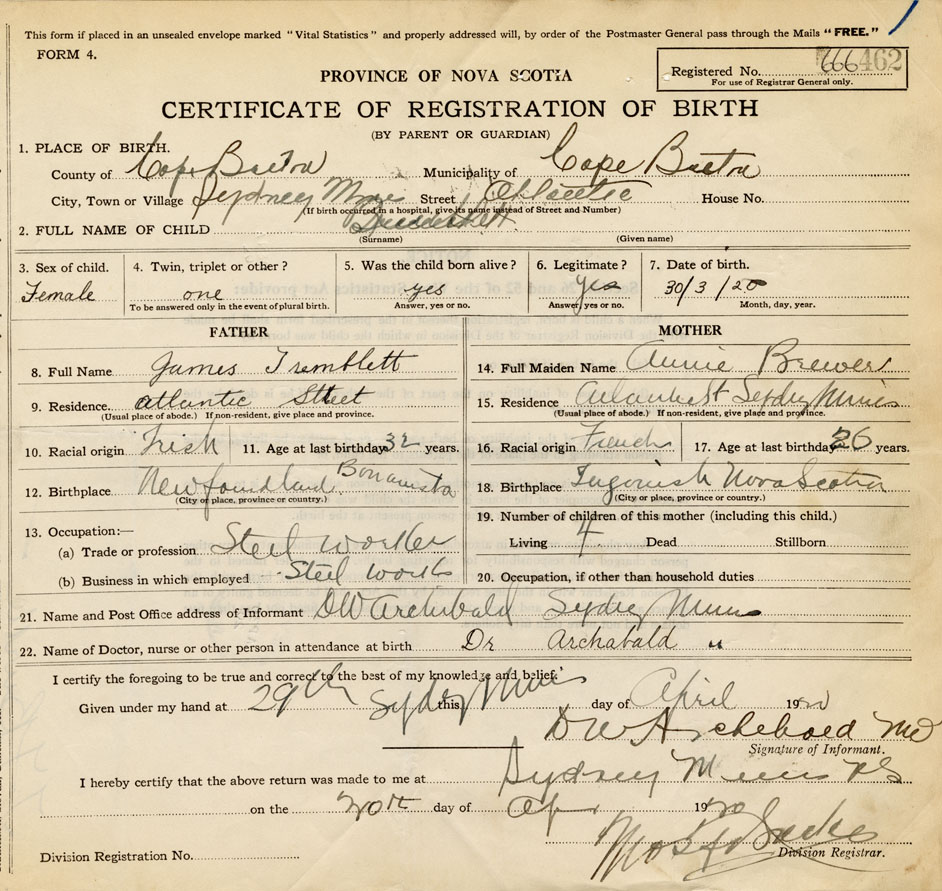 This form if placed in an unsealed envelope marked "Vital Statistics" and properly addressed will, by order of the Postmaster General pass through the Mails "FREE."
FORM 4.
Registered No. 666462
For use of Registrar General only.
PROVINCE OF NOVA SCOTIA
CERTIFICATE OF REGISTRATION OF BIRTH
(BY PARENT OR GUARDIAN)
1. PLACE OF BIRTH.
County of Cape Breton Municipality of Cape Breton
City, Town or Village Sydney Mines Street Atlantic House No.
(If birth occurred in a hospital, give its name instead of Street and Number)
2. FULL NAME OF CHILD
(Surname) (Given name)
3. Sex of child. 4. Twin, triplet or other? 5. Was the child born alive? 6. Legitimate? 7. Date of birth.
Female one yes yes 30/3/20
To be answered only in the event of plural birth. Answer, yes or no. Answer, yes or no. Month, day, year.
FATHER
8. Full Name James Tremblett
9. Residence. atlantic Street
(Usual place of abode.) If non-resident, give place and province.
10. Racial origin Irish 11. Age at last birthday 32 years.
12. Birthplace Newfoundland Bonavista
(City or place, province or country.)
13. Occupation:—
(a) Trade or profession Steel worker
(b) Business in which employed Steel work
MOTHER
14. Full Maiden Name Annie Brewer
15. Residence Atlantic St Sydney Mines
(Usual place of abode.) If non-resident, give place and province.
16. Racial origin French 17. Age at last birthday 26 years.
18. Birthplace Ingonish Nova Scotia
(City or place, province or country.)
19. Number of children of this mother (including this child.)
Living 4 Dead Stillborn
20. Occupation, if other than household duties
21. Name and Post Office address of Informant DW Archibald Sydney Mines
22. Name of Doctor, nurse or other person in attendance at birth Dr Archabald "
I certify the foregoing to be true and correct to the best of my knowledge and belief.
Given under my hand at 29th Sydney Mines this day of April 1920
DW Archibald MD
Signature of Informant.
I hereby certify that the above return was made to me at Sydney Mines NS
on the 30th day of Ap 1920
Division Registration No.
Division Registrar.